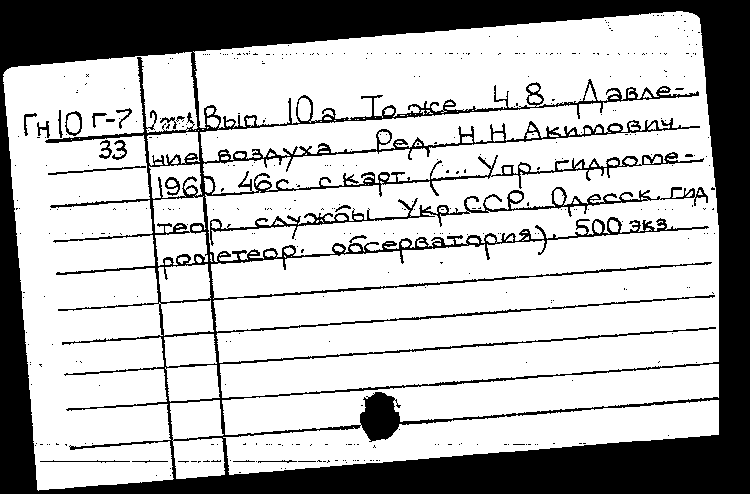 Гн10 Г-7 2экз Вып. 10а То же. Ч.8. Давле-
33 ние воздуха. Ред. Н.Н. Акимович.
1960. 46с. с карт. (... Упр. гидроме-
теор. службы Укр.ССР. Одесск. гид-
рометеор. обсерватория). 500 экз.